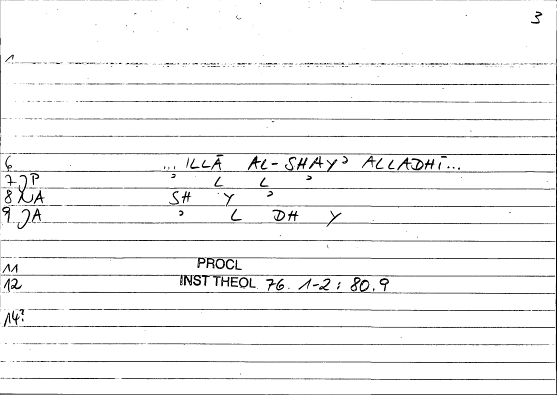 3
1
6 ... ILLĀ AL-SHAYʾ ALLADHĪ...
7 JP ʾ L L ʾ
8 NA SH Y ʾ
9 JA ʾ L DH Y
11 PROCL
12 INST THEOL 76. 1-2 : 80.9
14?